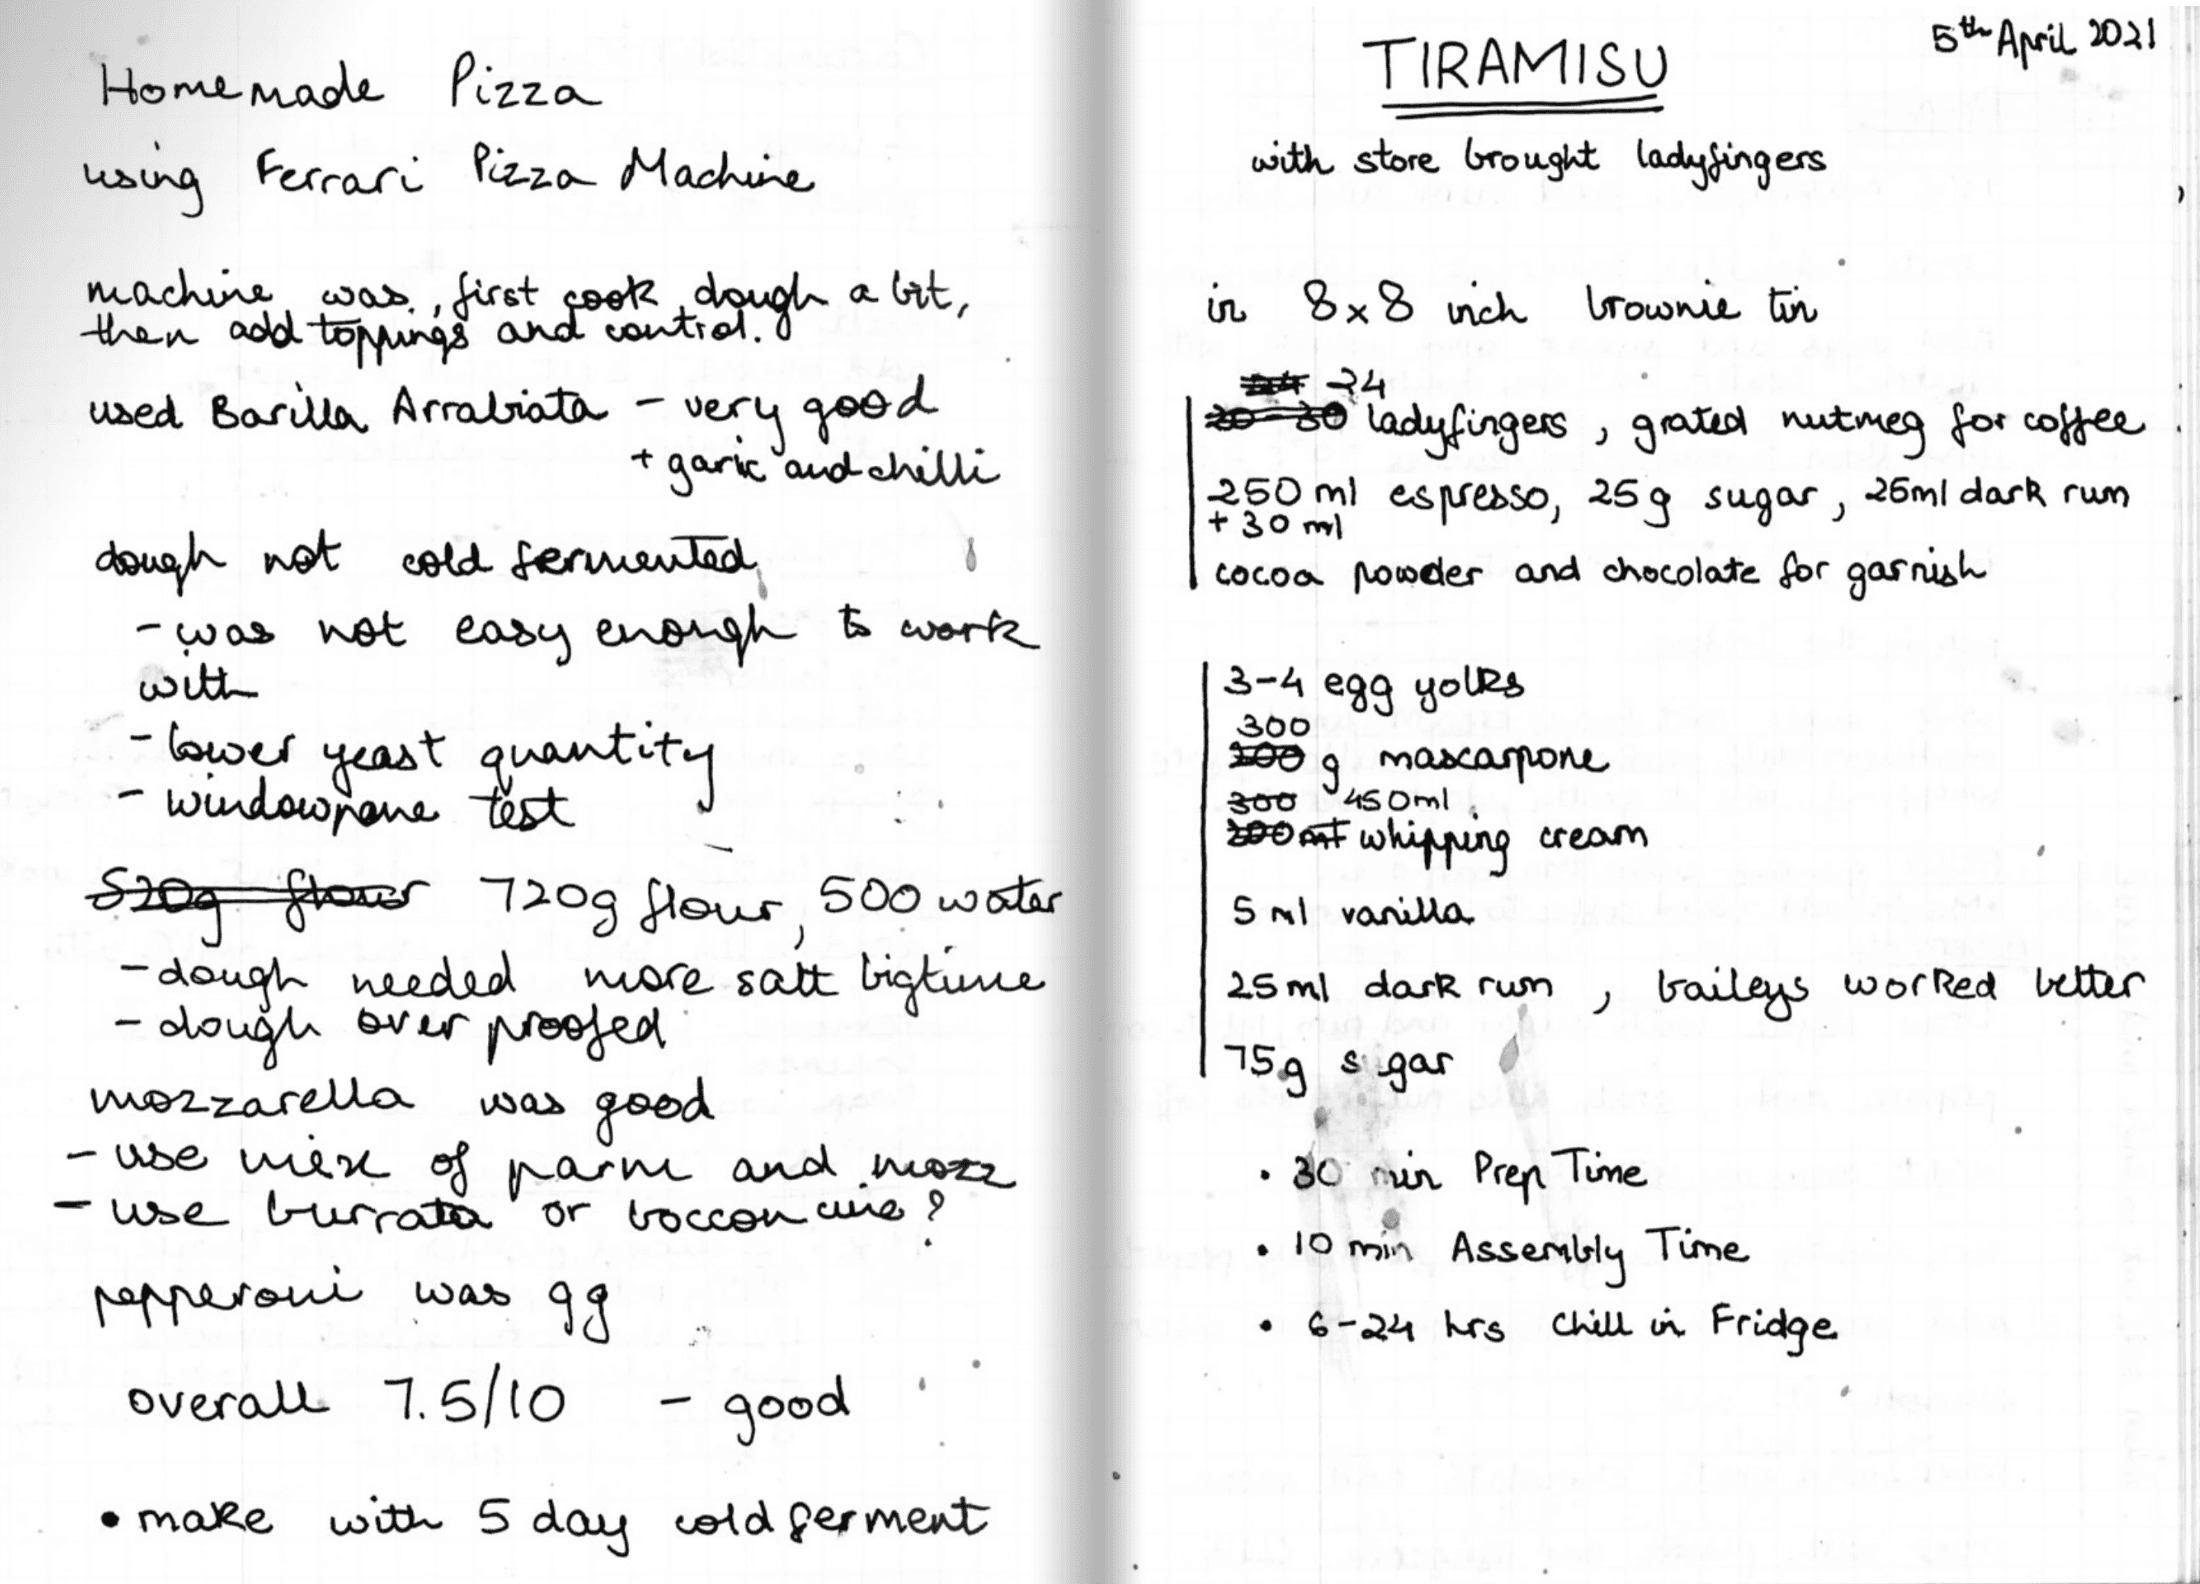 Homemade Pizza
using Ferrari Pizza Machine
machine was, first cook dough a bit,
then add toppings and control.
used Barilla Arrabiata - very good
+ garic and chilli
dough not cold fermented,
- was not easy enough to work
with
- lower yeast quantity
- windowpane test
520g flour 720g flour, 500 water
- dough needed more salt bigtime
- dough over proofed
mozzarella was good
- use mix of parm and mozz
- use burrata or bocconcine?
pepperoni was gg
overall 7.5/10 - good
• make with 5 day cold ferment
5th April 2021
TIRAMISU
with store brought ladyfingers
in 8x8 inch brownie tin
24
30 ladyfingers, grated nutmeg for coffee
250 ml espresso, 25g sugar, 25ml dark rum
+ 30 ml
cocoa powder and chocolate for garnish
3-4 egg yolks
300
g mascarpone
300 450ml
200ml whipping cream
5 ml vanilla
25ml dark rum, baileys worked better
75g sugar
• 30 min Prep Time
• 10 min Assembly Time
• 6-24 hrs chill in Fridge